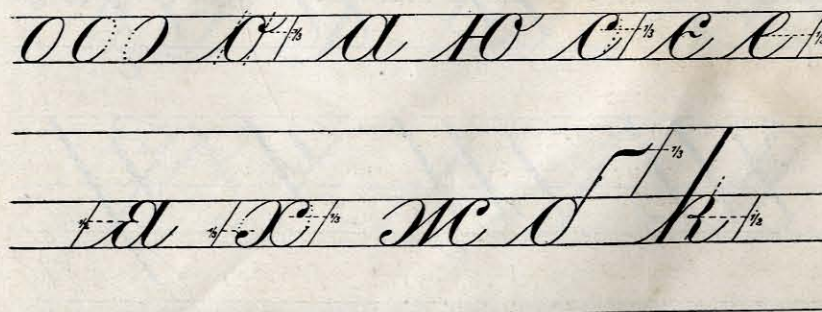 о с о о ⅓ а ю с ⅓ є е ⅓
½ я ⅓ х ⅓ ж б ⅓ к ½